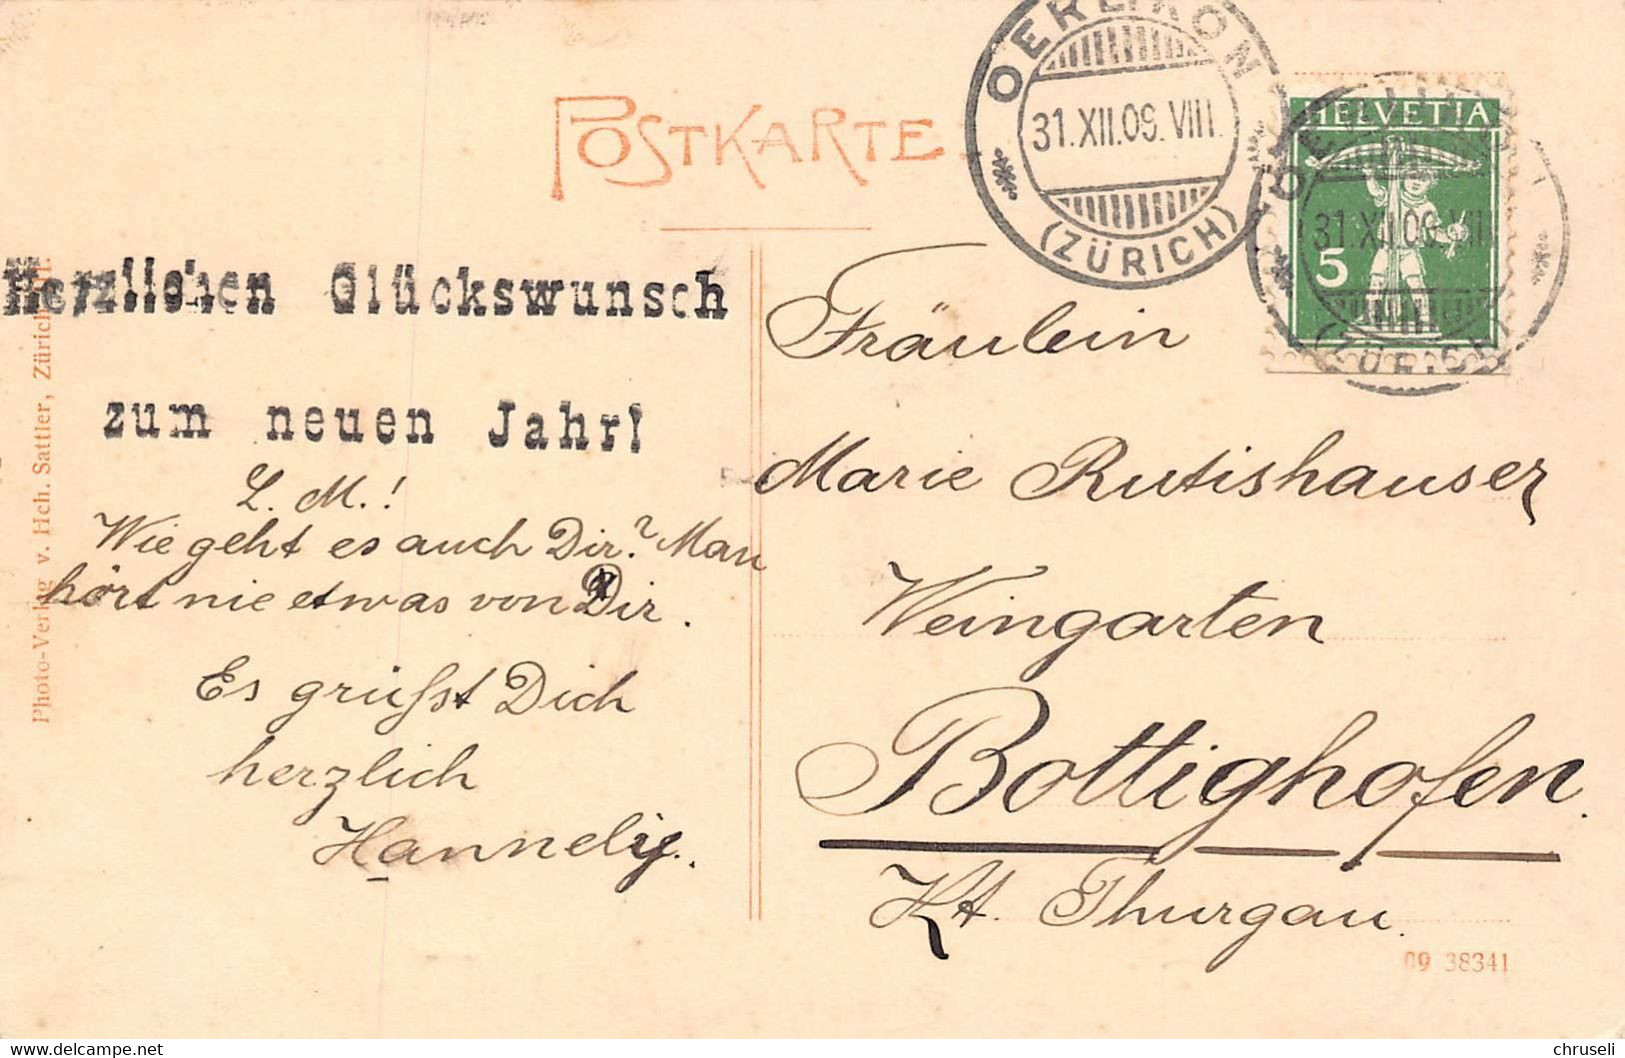 POSTKARTE
OERLIKON
31.XII.09. VIII.
(ZÜRICH)
HELVETIA
5
31.XII.09. VIII
(ZÜRICH)
Herzlichen Glückswunsch
zum neuen Jahr!
L. M.!
Wie geht es auch Dir? Man
hört nie etwas von Dir.
Es grüßt Dich
herzlich
Hannely.
Fräulein
Marie Rutishauser
Weingarten
Bottighofen.
Kt. Thurgau.
Photo-Verlag v. Hch. Sattler, Zürich
09 38341
www.delcampe.net
chruseli